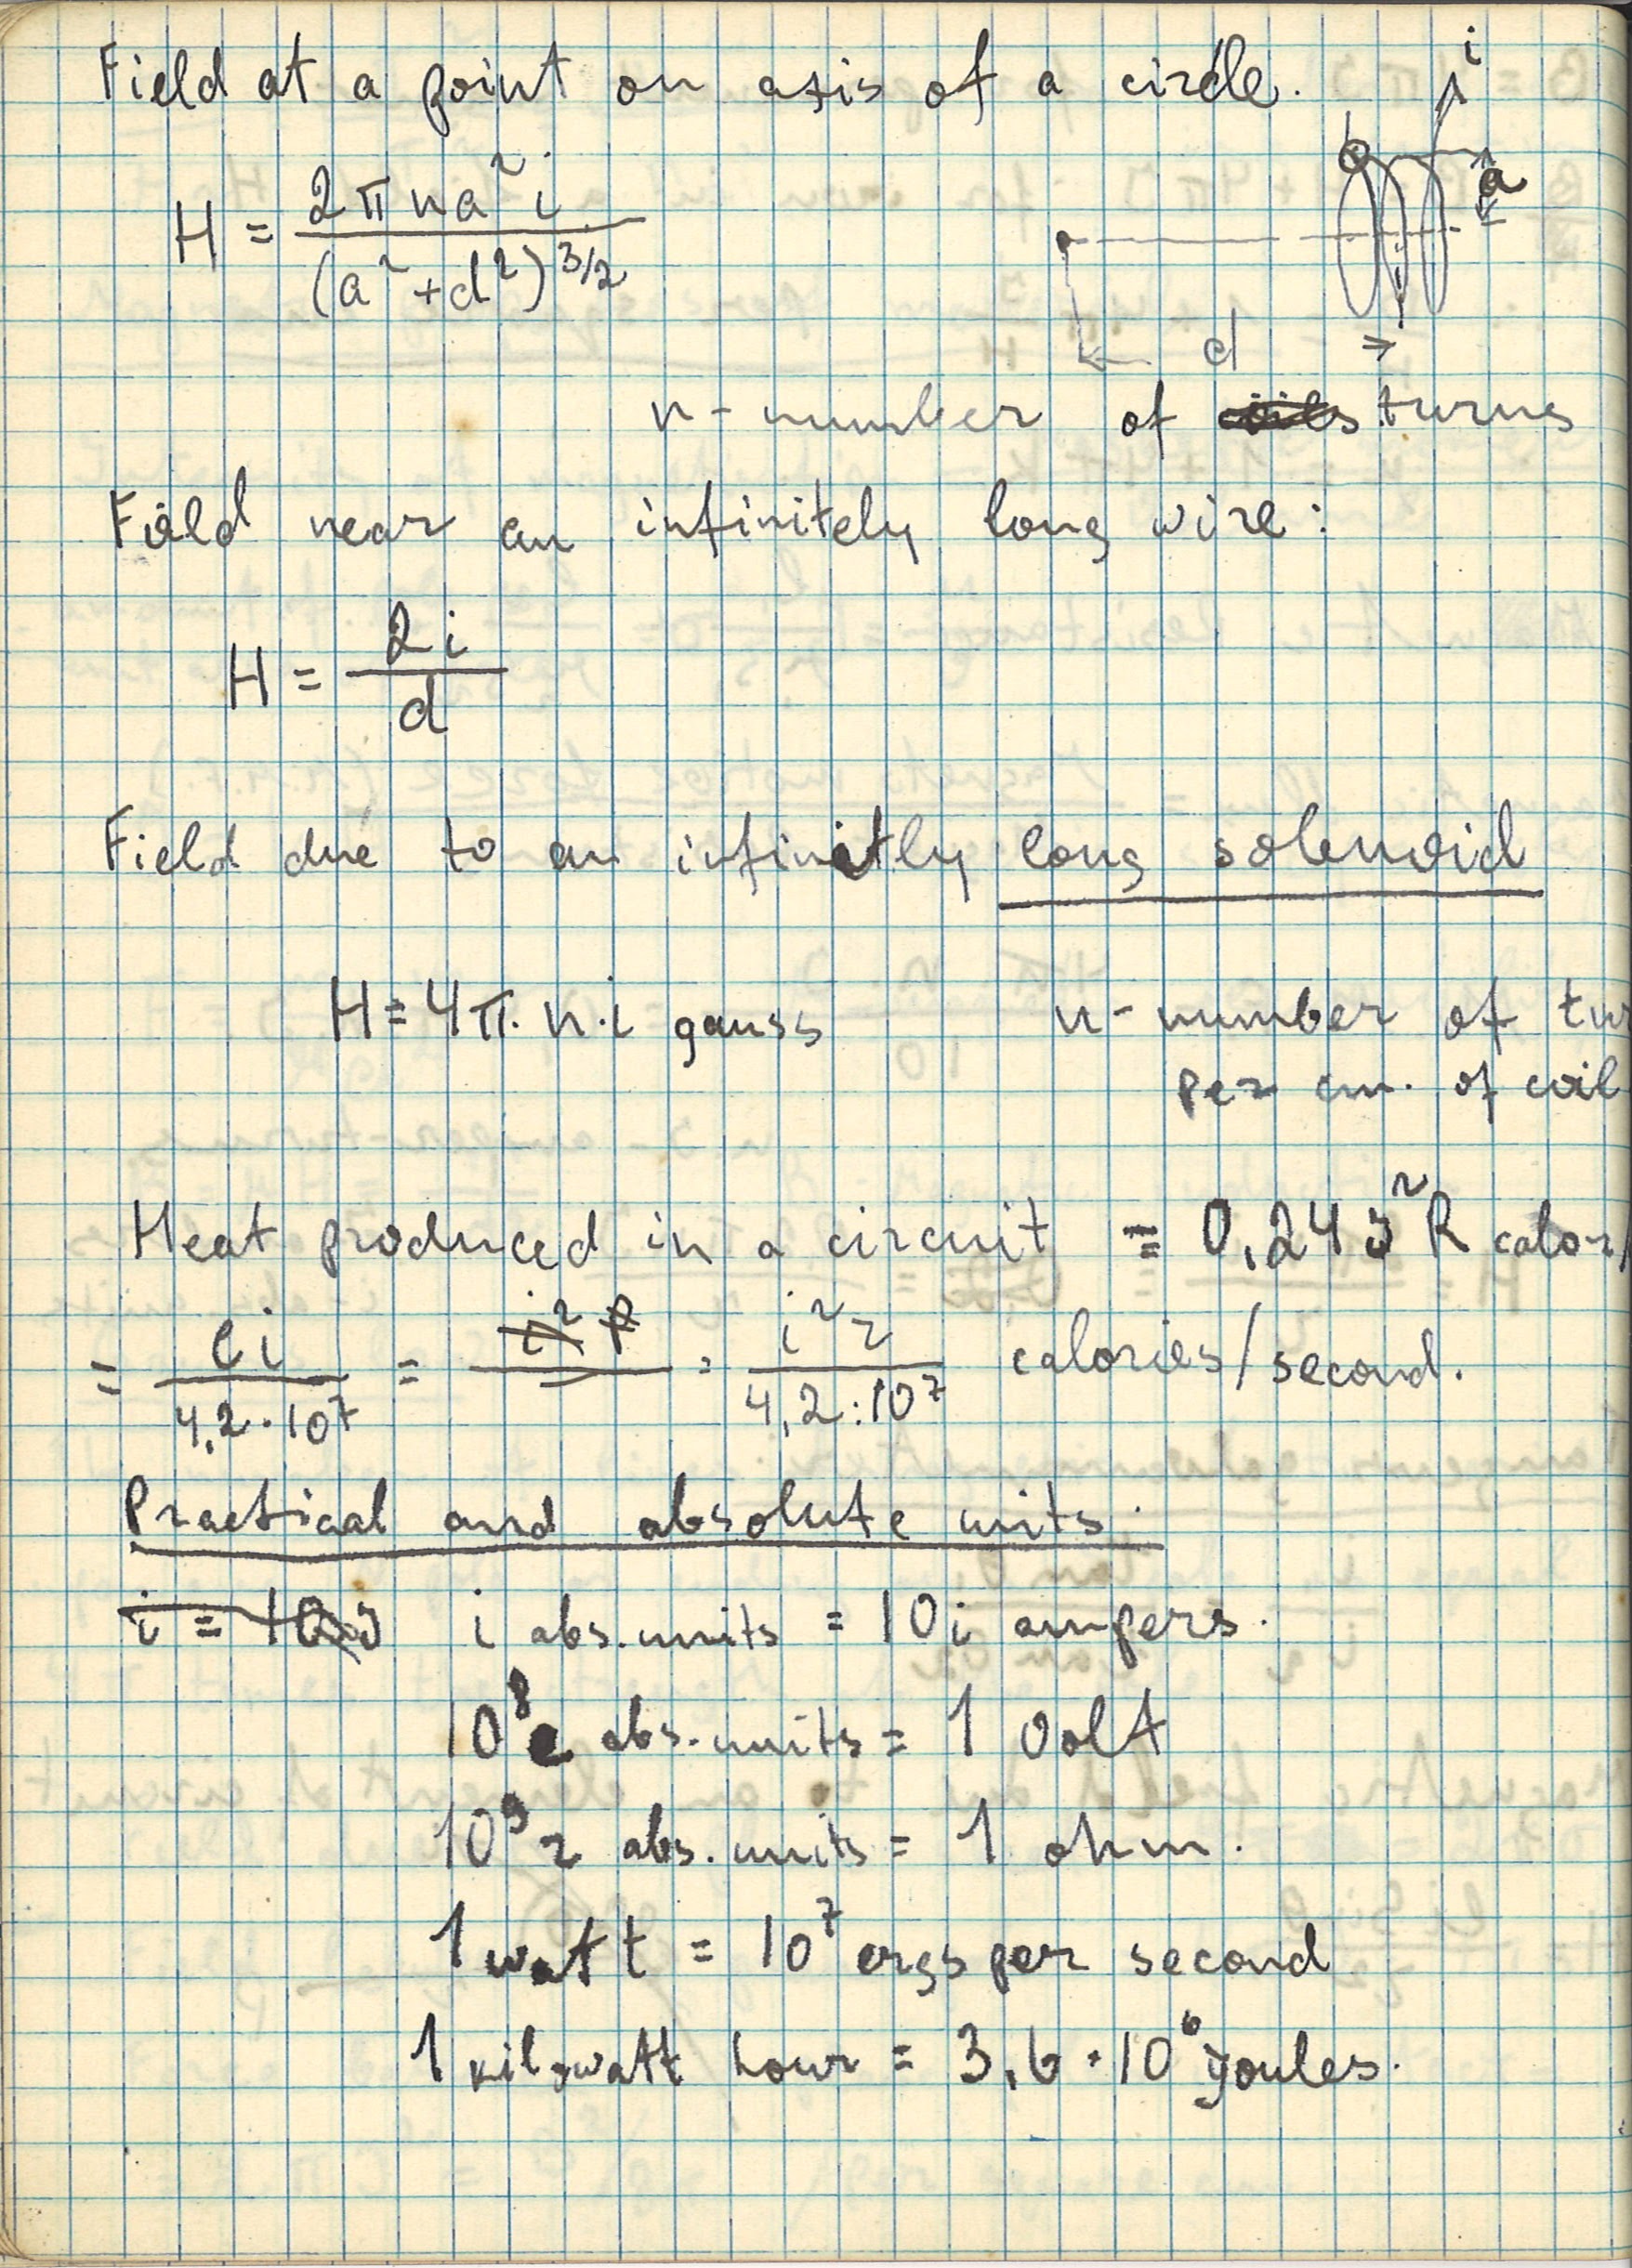 Field at a point on axis of a circle.
i
a
H = 2πna²i / (a²+d²)^3/2
d
n - number of turns
Field near an infinitely long wire:
H = 2i / d
Field due to an infinitly long solenoid
H = 4π·n·i gauss n - number of tur
per cm. of coil
Heat produced in a circuit = 0,24 J²R calor/
= ei / 4,2·10⁷ = i²r / 4,2·10⁷ calories/second.
Practical and absolute units.
i = 10J i abs. units = 10i ampers.
10⁸ e abs. units = 1 Volt
10⁹ r abs. units = 1 ohm.
1 watt = 10⁷ ergs per second
1 kilowatt hour = 3,6·10⁶ joules.